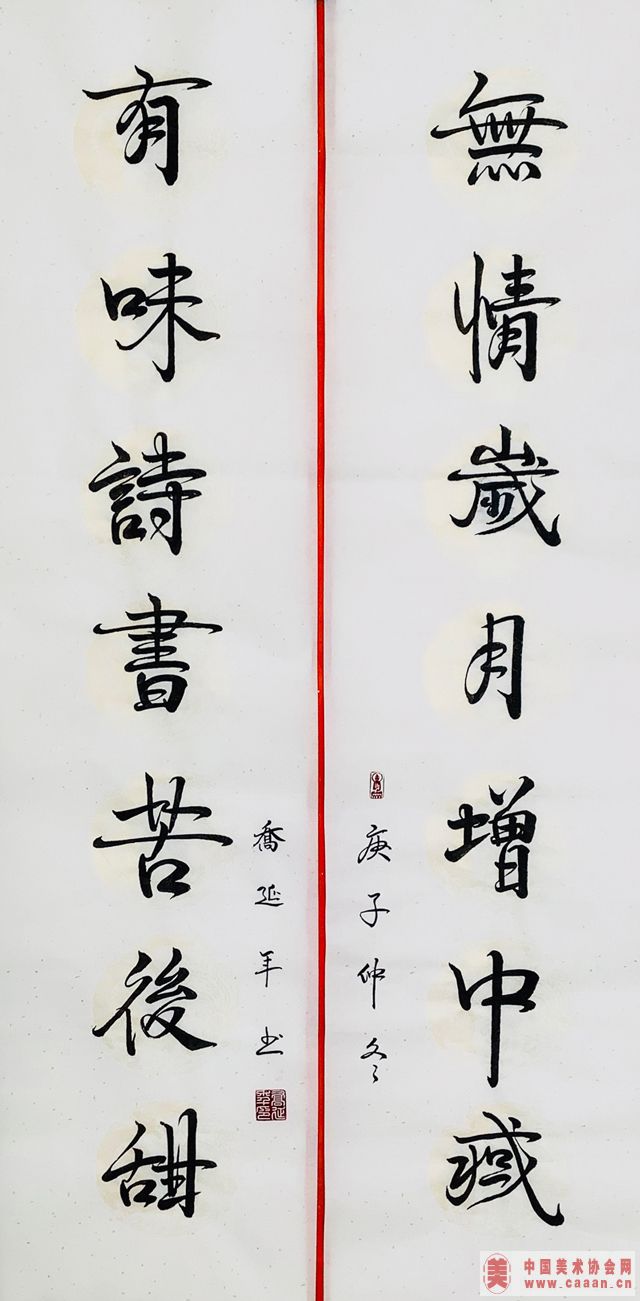 無情歲月增中減
庚子仲冬
有味詩書苦後甜
喬延年书
喬延年印
美
中国美术协会网
www.caaan.cn